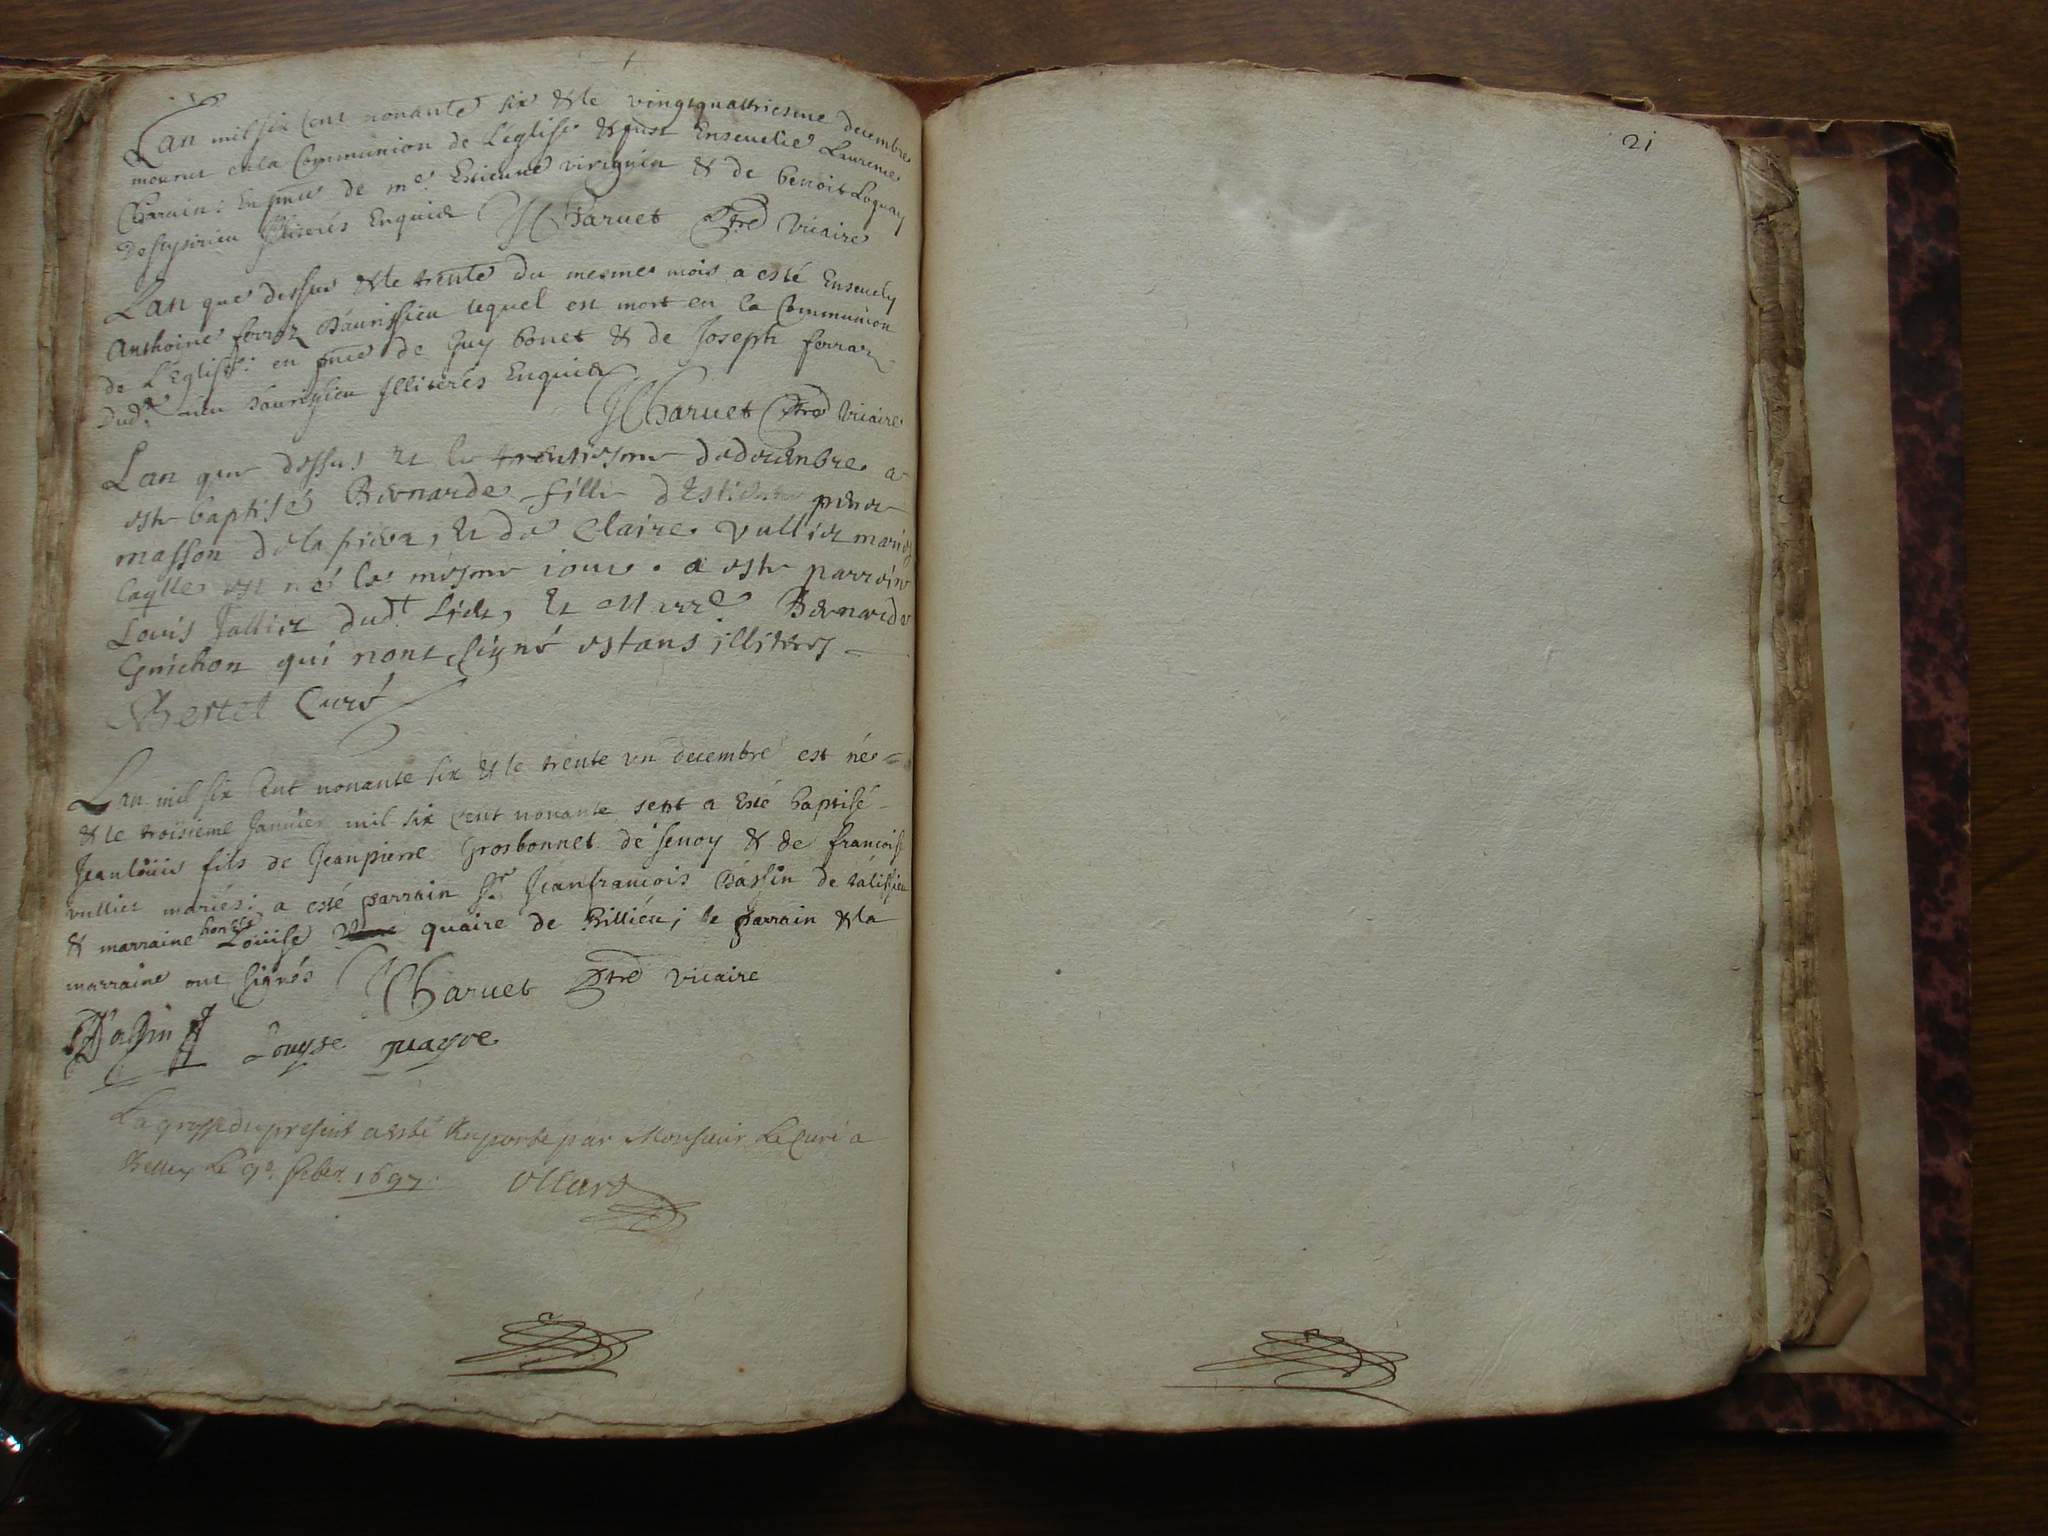 Lan mil six cent nonante six & le vingtquattriesme decembre
mourut en la Communion de Leglise & fust Ensevelie Laurence
Charain: En pnce de me. Estienne virignin & de benoit Loquay
de seysirieu illiterés Enquis JCharuet Ptre Vicaire
Lan que dessus & le trente du mesme mois a esté Ensevely
Anthoine ferroz Daurissieu lequel est mort en la Communion
de LEglise: en pnce de Guy bonet & de Joseph ferraz
Dudt lieu Daurissieu Illiterés Enquis
JCharuet Ptre Vicaire
Lan que dessus et le trentiesme de decembre a
este baptisé Bernarde fille dEstienne
masson de la et de Claire Vullier mariés
laqlle est né le mesme iour. a este parrein
Louis Jallier dudt Lieu, et Marre Bernarde
Guichon qui nont signé estans illiteres
Bertet Curé
Lan mil six Cent nonante six & le trente un decembre est né
& le troisieme Janvier mil six Cent nonante sept a Esté baptisé
Jeanloüis fils de Jeanpierre Grosbonnet de senoy & de francoise
vullier mariés: a esté parrain Sr Jeanfrancois Dassin de talissieu
& marraine honete Loüise quaire de Billieu; le parrain & la
marraine ont signés JCharuet Ptre Vicaire
Dassin Louyse quayre
La grosse du present a esté Raporté par Monsieur Le Curé a
Belley Le 9e feber 1697. Ollard
21